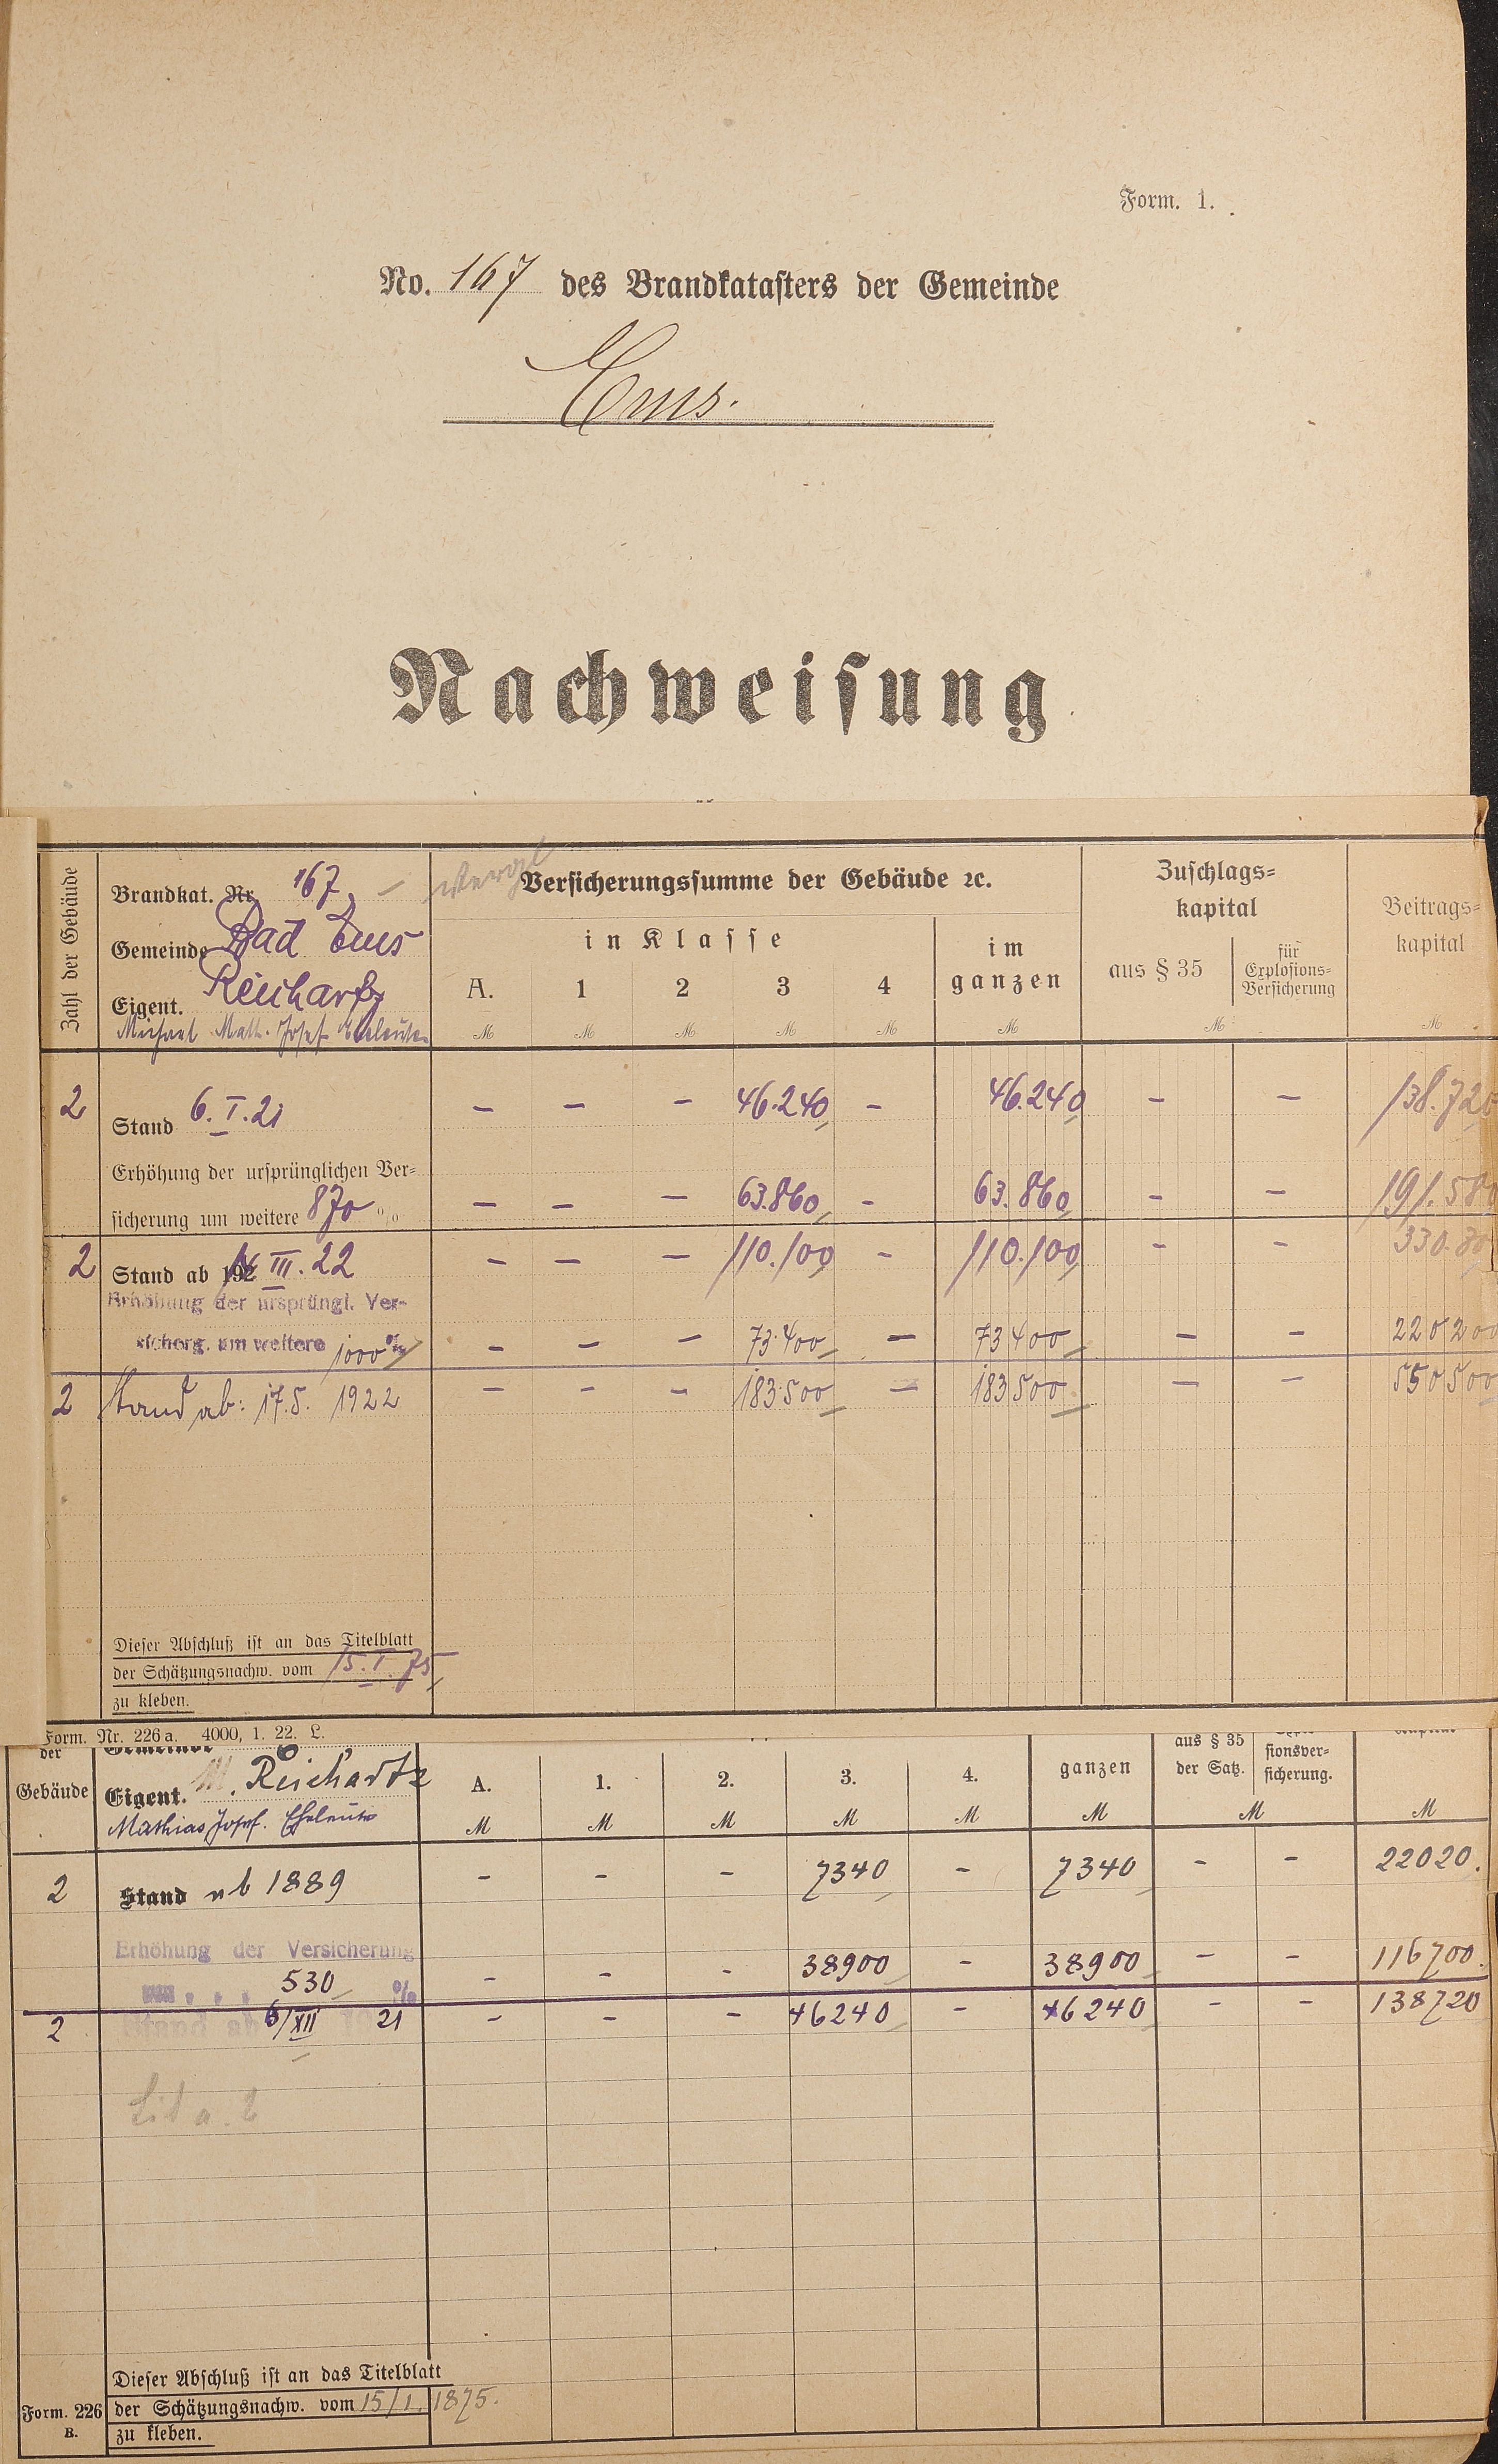 Form. 1.
No. 167 des Brandkatasters der Gemeinde
Ems.
Nachweisung
Zahl der Gebäude
Brandkat. Nr. 167
Gemeinde Bad Ems
Eigent. Reichartz
Math. Josef Eheleute
Versicherungssumme der Gebäude ꝛc.
in Klasse
A. 1 2 3 4
im ganzen
Zuschlags=
kapital
aus § 35
für
Explosions=
Versicherung
Beitrags=
kapital
M M M M M M M M
2 Stand 6. I. 21 – – – 46.240 – 46.240 – – 138.720
Erhöhung der ursprünglichen Ver=
sicherung um weitere 870 % – – – 63.860 – 63.860 – – 191.580
2 Stand ab 192 III. 22 – – – 110.100 – 110.100 – – 330.30
Erhöhung der ursprüngl. Ver-
sicherg. um weitere 1000 % – – – 73.400 – 73400 – – 220200
2 Stand ab: 17.5. 1922 – – – 183.500 – 183500 – – 550500
Dieser Abschluß ist an das Titelblatt
der Schätzungsnachw. vom 15. I. 75
zu kleben.
Form. Nr. 226 a. 4000, 1. 22. L.
der Gebäude
Gemeinde
Eigent. M. Reichartz
Mathias Josef. Eheleute
A. 1. 2. 3. 4. ganzen
aus § 35
der Satz.
sionsver=
sicherung.
M M M M M M M M
2 Stand ab 1889 – – – 7340 – 7340 – – 22020.
Erhöhung der Versicherung
530 % – – – 38900 – 38900 – – 116700.
2 Stand ab 6/XII 21 – – – 46240 – 46240 – – 138720
Lit a. b
Dieser Abschluß ist an das Titelblatt
der Schätzungsnachw. vom 15/1. 1875.
zu kleben.
Form. 226
B.